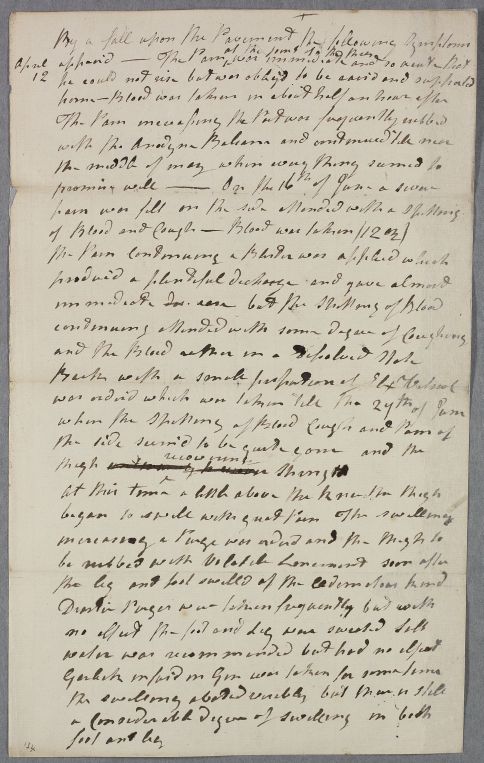 By a fall upon the Pavement the following Symptoms
April 12
appear'd — The Pain at the joint of the Thigh was immediate and so acute that
he could not rise but was oblig'd to be carried and supported
home — Blood was taken in about half an hour after
The Pain increasing the Part was frequently rubbed
with the Anodyne Balsam and continued till near
the middle of may when every thing seemed to
promise well — On the 16th of June a severe
pain was felt on the side attended with a Spitting
of Blood and Cough — Blood was taken (12 oz)
the Pain continuing a Blister was applied which
produced a plentiful discharge and gave almost
immediate ease but the Spitting of Blood
continuing attended with some Degree of Coughing
and the Blood rather in a dissolved State
Barks with a small proportion of Elixr Vitriol
was order'd which was taken till the 29th of June
when the Spitting of Blood Cough and Pain of
the side seem'd to be quite gone and the
thigh recovering Strength
At this time a little above the Knee the thigh
began to swell with great Pain The swelling
increasing a Purge was order'd and the thigh to
be rubbed with Volatile Linement soon after
the leg and foot swelled of the œdematous kind
Drastic Purges were taken frequently but with
no effect the foot and Leg were sweated Salt
water was recommended but had no effect
Garlick infused in Gin was taken for some time
the swelling abated visibly but there is still
a Considerable Degree of Swelling in both
foot and leg